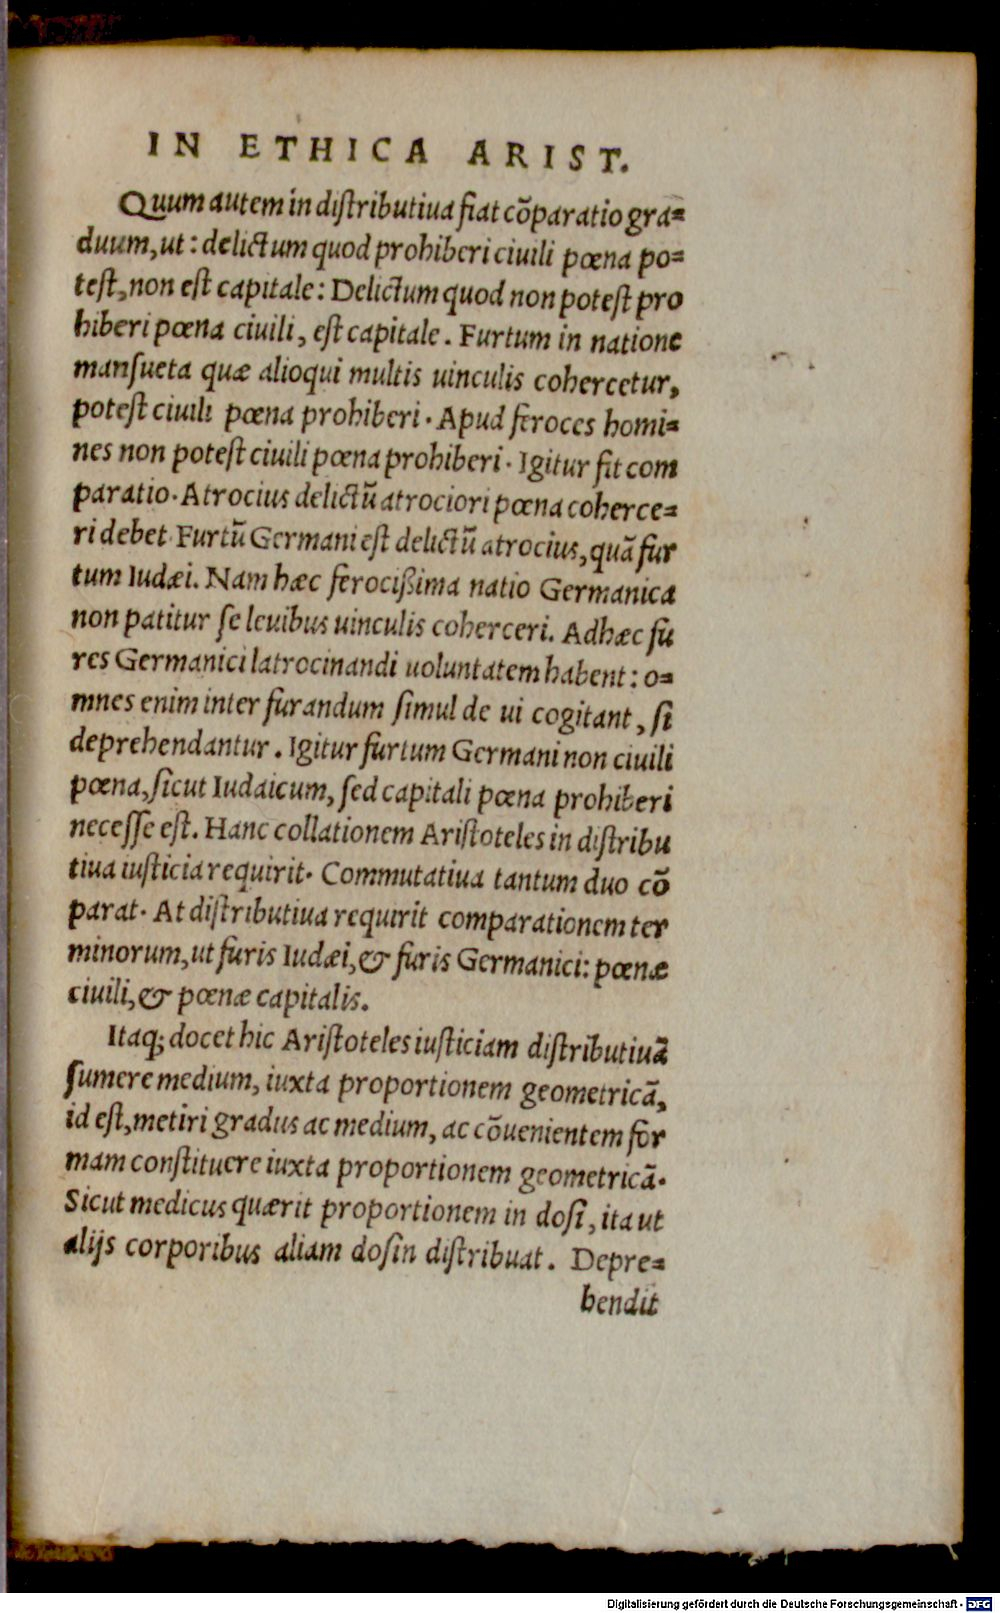 IN ETHICA ARIST.
Quum autem in distributiua fiat cōparatio gra=
duum, ut: delictum quod prohiberi ciuili pœna po=
test, non est capitale: Delictum quod non potest pro
hiberi pœna ciuili, est capitale. Furtum in natione
mansueta quæ alioqui multis uinculis cohercetur,
potest ciuili pœna prohiberi. Apud feroces homi=
nes non potest ciuili pœna prohiberi. Igitur fit com
paratio. Atrocius delictū atrociori pœna coherce=
ri debet. Furtū Germani est delictū atrocius, quā fur
tum Iudæi. Nam hæc ferocißima natio Germanica
non patitur se leuibus uinculis coherceri. Adhæc fu
res Germanici latrocinandi uoluntatem habent: o=
mnes enim inter furandum simul de ui cogitant, si
deprehendantur. Igitur furtum Germani non ciuili
pœna, sicut Iudaicum, sed capitali pœna prohiberi
necesse est. Hanc collationem Aristoteles in distribu
tiua iusticia requirit. Commutatiua tantum duo cō
parat. At distributiua requirit comparationem ter
minorum, ut furis Iudæi, & furis Germanici: pœnæ
ciuili, & pœnæ capitalis.
Itaq; docet hic Aristoteles iusticiam distributiuā
sumere medium, iuxta proportionem geometricā,
id est, metiri gradus ac medium, ac cōuenientem for
mam constituere iuxta proportionem geometricā.
Sicut medicus quærit proportionem in dosi, ita ut
alijs corporibus aliam dosin distribuat. Depre=
hendit
Digitalisierung gefördert durch die Deutsche Forschungsgemeinschaft - DFG